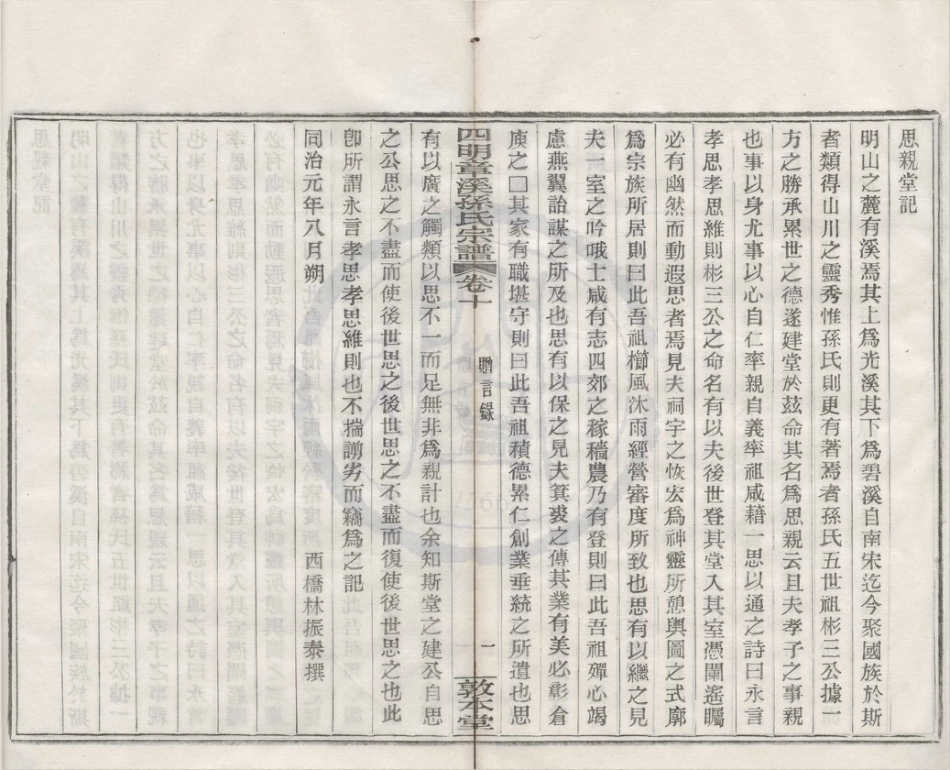 思親堂記
明山之麓有溪焉其上爲光溪其下爲碧溪自南宋迄今聚國族於斯
者類得山川之靈秀惟孫氏則更有著焉者孫氏五世祖彬三公據一
方之勝承累世之德遂建堂於兹命其名爲思親云且夫孝子之事親
也事以身尤事以心自仁率親自義率祖咸藉一思以通之詩曰永言
孝思孝思維則彬三公之命名有以夫後世登其堂入其室憑闌遙矚
必有幽然而動遐思者焉見夫祠宇之恢宏爲神靈所憩輿圖之式廓
爲宗族所居則曰此吾祖櫛風沐雨經營審度所致也思有以繼之見
夫一室之吟哦士咸有志四郊之稼穡農乃有登則曰此吾祖殫心竭
慮燕翼詒謀之所及也思有以保之見夫箕裘之傳其業有美必彰倉
庾之□其家有職堪守則曰此吾祖積德累仁創業垂統之所遺也思
四明章溪孫氏宗譜 卷十 贈言錄 一 敦本堂
有以廣之觸類以思不一而足無非爲親計也余知斯堂之建公自思
之公思之不盡而使後世思之後世思之不盡而復使後世思之也此
卽所謂永言孝思孝思維則也不揣謭劣而竊爲之記
同治元年八月朔 西橋林振泰撰